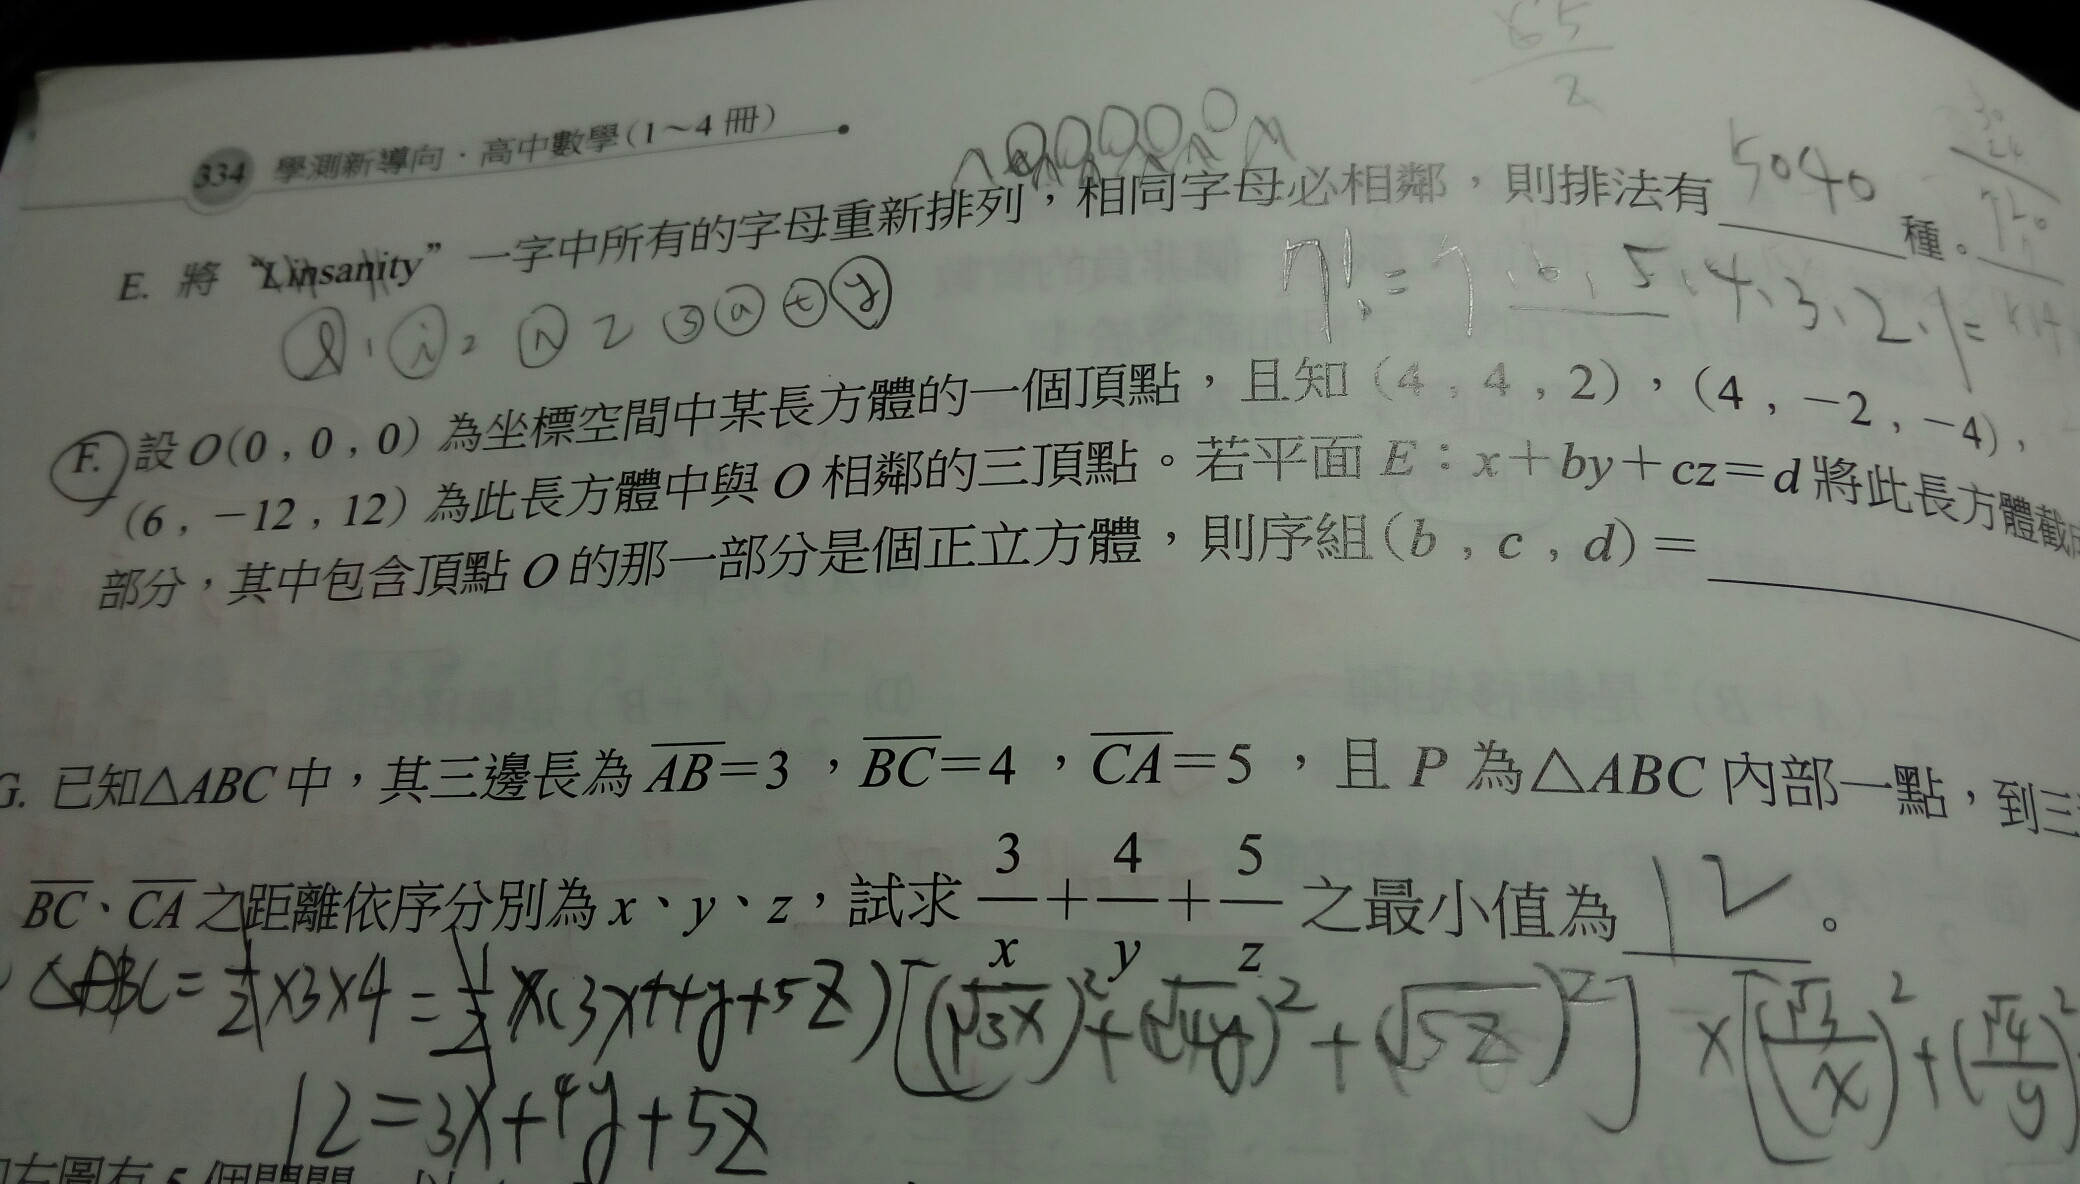 65
2
334 學測新導向．高中數學(1～4 冊)
30
24
E. 將 “Linsanity” 一字中所有的字母重新排列，相同字母必相鄰，則排法有 5040 種。
720
7
7! = 7.6.5.4.3.2.1=
l 1 i 2 n 2 s a t y
F. 設 O(0，0，0) 為坐標空間中某長方體的一個頂點，且知 (4，4，2)，(4，−2，−4)，
(6，−12，12) 為此長方體中與 O 相鄰的三頂點。若平面 E：x＋by＋cz＝d 將此長方體截
部分，其中包含頂點 O 的那一部分是個正立方體，則序組(b，c，d)＝
G. 已知△ABC 中，其三邊長為 AB＝3，BC＝4，CA＝5，且 P 為△ABC 內部一點，到三
BC、CA 之距離依序分別為 x、y、z，試求 3/x＋4/y＋5/z 之最小值為 12 。
△ABC = 1/2 ×3×4 = 1/2 ×(3x+4y+5z) [(√3x)²+(√4y)²+(√5z)²] ×[(√3/x)²+(√4/y)²
12=3x+4y+5z